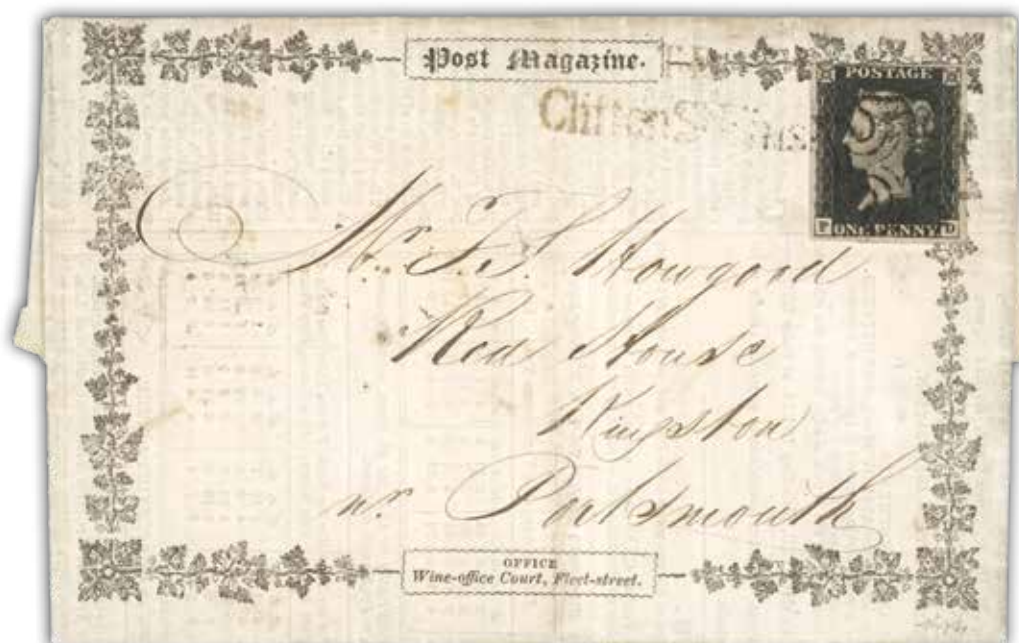 Post Magazine.
Clifton St
POSTAGE
P ONE PENNY D
Mr. T. S. Howgood
Red House
Kingston
nr. Portsmouth
OFFICE
Wine-office Court, Fleet-street.